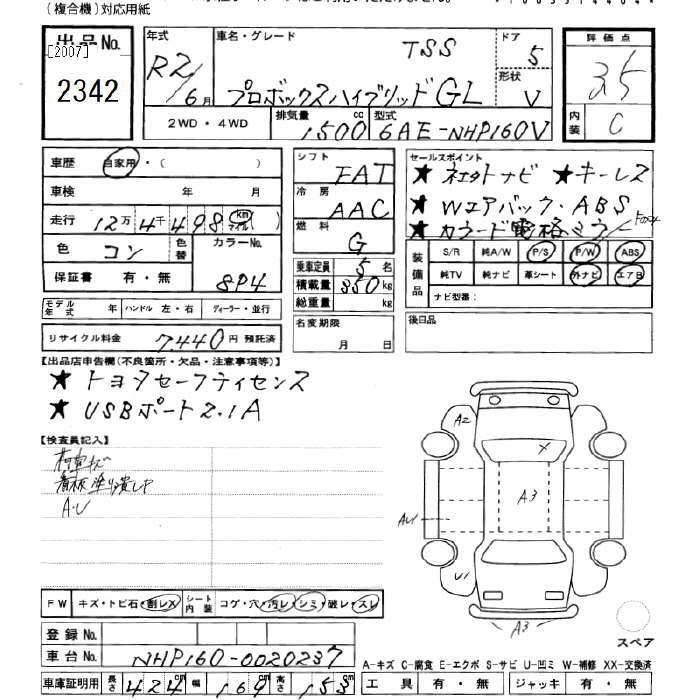 (複合機)対応用紙
出品No. [2007] 2342
年式 R2/6月
車名・グレード TSS
プロボックスハイブリッドGL
ドア 5
形状 V
2WD・4WD 排気量 1500cc 型式 6AE-NHP160V
評価点 3.5
内装 C
車歴 自家用・( )
車検 年 月
走行 12万4千498km マイル( )
色 コン 色替 カラーNo. 8P4
保証書 有・無
モデル年式 年 ハンドル 左・右 ディーラー・並行
リサイクル料金 7,440円 預託済
シフト FAT
冷房 AAC
燃料 G
乗車定員 5名
積載量 350kg
総重量 kg
名変期限 月 日
セールスポイント
★ネットナビ ★キーレス
★Wエアバック・ABS
★カラード電格ミラー
装備品 S/R 純A/W P/S P/W ABS
純TV 純ナビ 革シート 外ナビ エアB
ナビ型番:
後日品
【出品店申告欄(不良箇所・欠品・注意事項等)】
★トヨタセーフティセンス
★USBポート2.1A
【検査員記入】
看板塗り潰し
A・U
A2
X
A3
AU1
U1
A3
スペア
FW キズ・トビ石・割レX シート内装 コゲ・穴・汚レ・シミ・破レ・スレ
登録No.
車台No. NHP160-0020237
車庫証明用 長さ 424cm 幅 169cm 高さ 153cm
A-キズ C-腐食 E-エクボ S-サビ U-凹ミ W-補修 XX-交換済
工具 有・無 ジャッキ 有・無